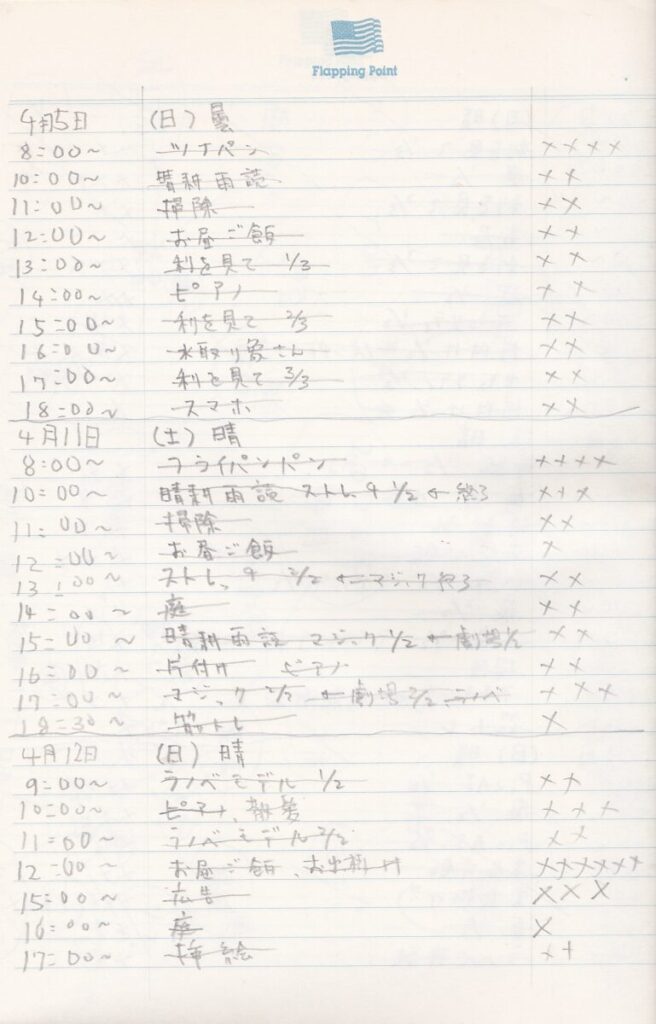 Flapping Point
4月5日 (日) 曇
8:00~ ツナパン ××××
10:00~ 晴耕雨読 ××
11:00~ 掃除 ××
12:00~ お昼ご飯 ××
13:00~ 利を見て 1/3 ××
14:00~ ピアノ ××
15:00~ 利を見て 2/3 ××
16:00~ 水取り象さん ××
17:00~ 利を見て 3/3 ××
18:00~ スマホ ××
4月11日 (土) 晴
8:00~ フライパンパン ××××
10:00~ 晴耕雨読 ストレッチ 1/2 ← 終了 ×××
11:00~ 掃除 ××
12:00~ お昼ご飯 ×
13:00~ ストレッチ 2/2 ← マジック 終了 ××
14:00~ 庭 ××
15:00~ 晴耕雨読 マジック 1/2 ← 劇場 1/2 ××
16:00~ 片付け ピアノ ××
17:00~ マジック 2/2 ← 劇場 2/2 ラノベ ×××
18:30~ 筋トレ ×
4月12日 (日) 晴
9:00~ ラノベモデル 1/2 ××
10:00~ ピアノ、 ×××
11:00~ ラノベモデル 2/2 ××
12:00~ お昼ご飯、お出掛け ××××××
15:00~ 広告 ×××
16:00~ 庭 ×
17:00~ 挿絵 ××